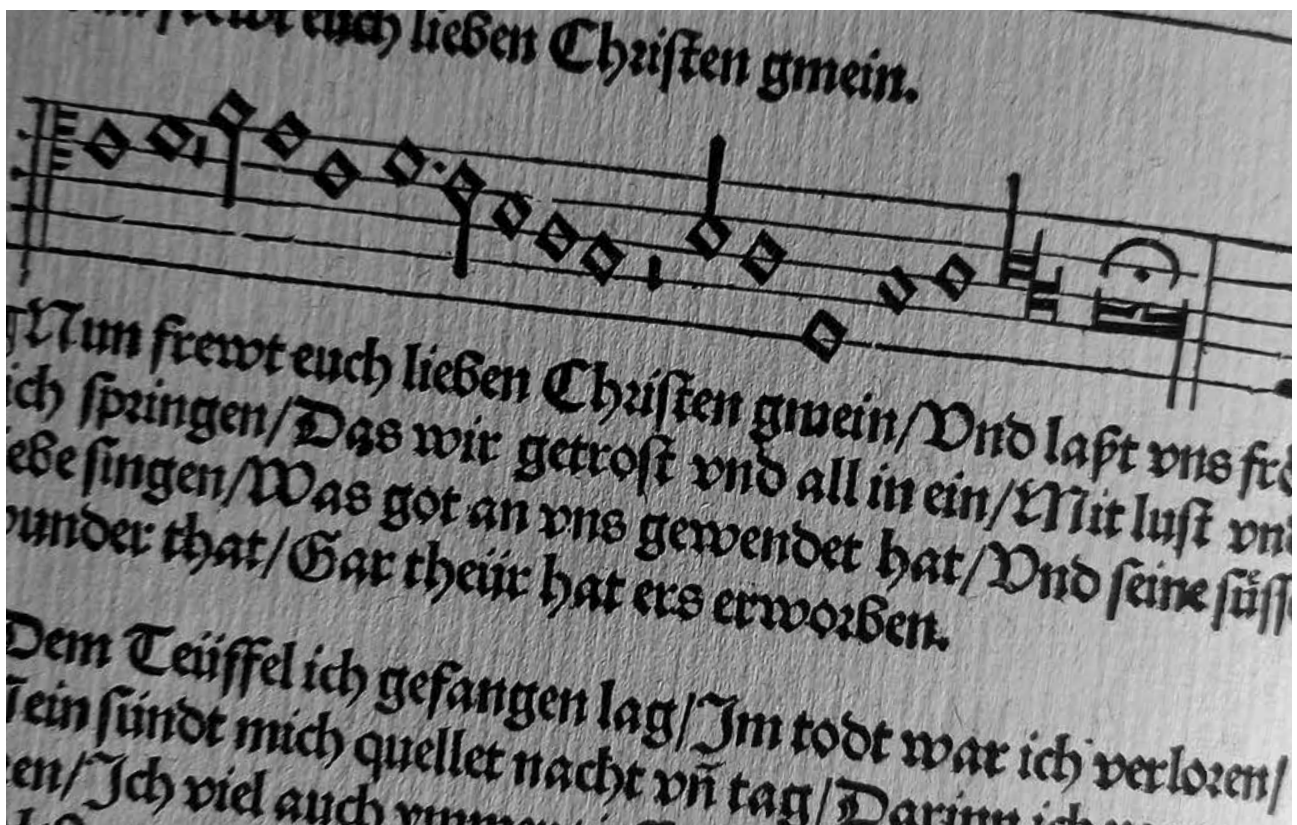 frewt euch lieben Christen gmein.
Nun frewt euch lieben Christen gmein/Vnd laßt vns frö
ich springen/Das wir getrost vnd all in ein/Mit lust vnd
ebe singen/Was got an vns gewendet hat/Vnd seine süss
under that/Gar theür hat ers erworben.
Dem Teüffel ich gefangen lag/Im todt war ich verloren/
ein sündt mich quellet nacht vñ tag/Darinn ich
en/Ich viel auch